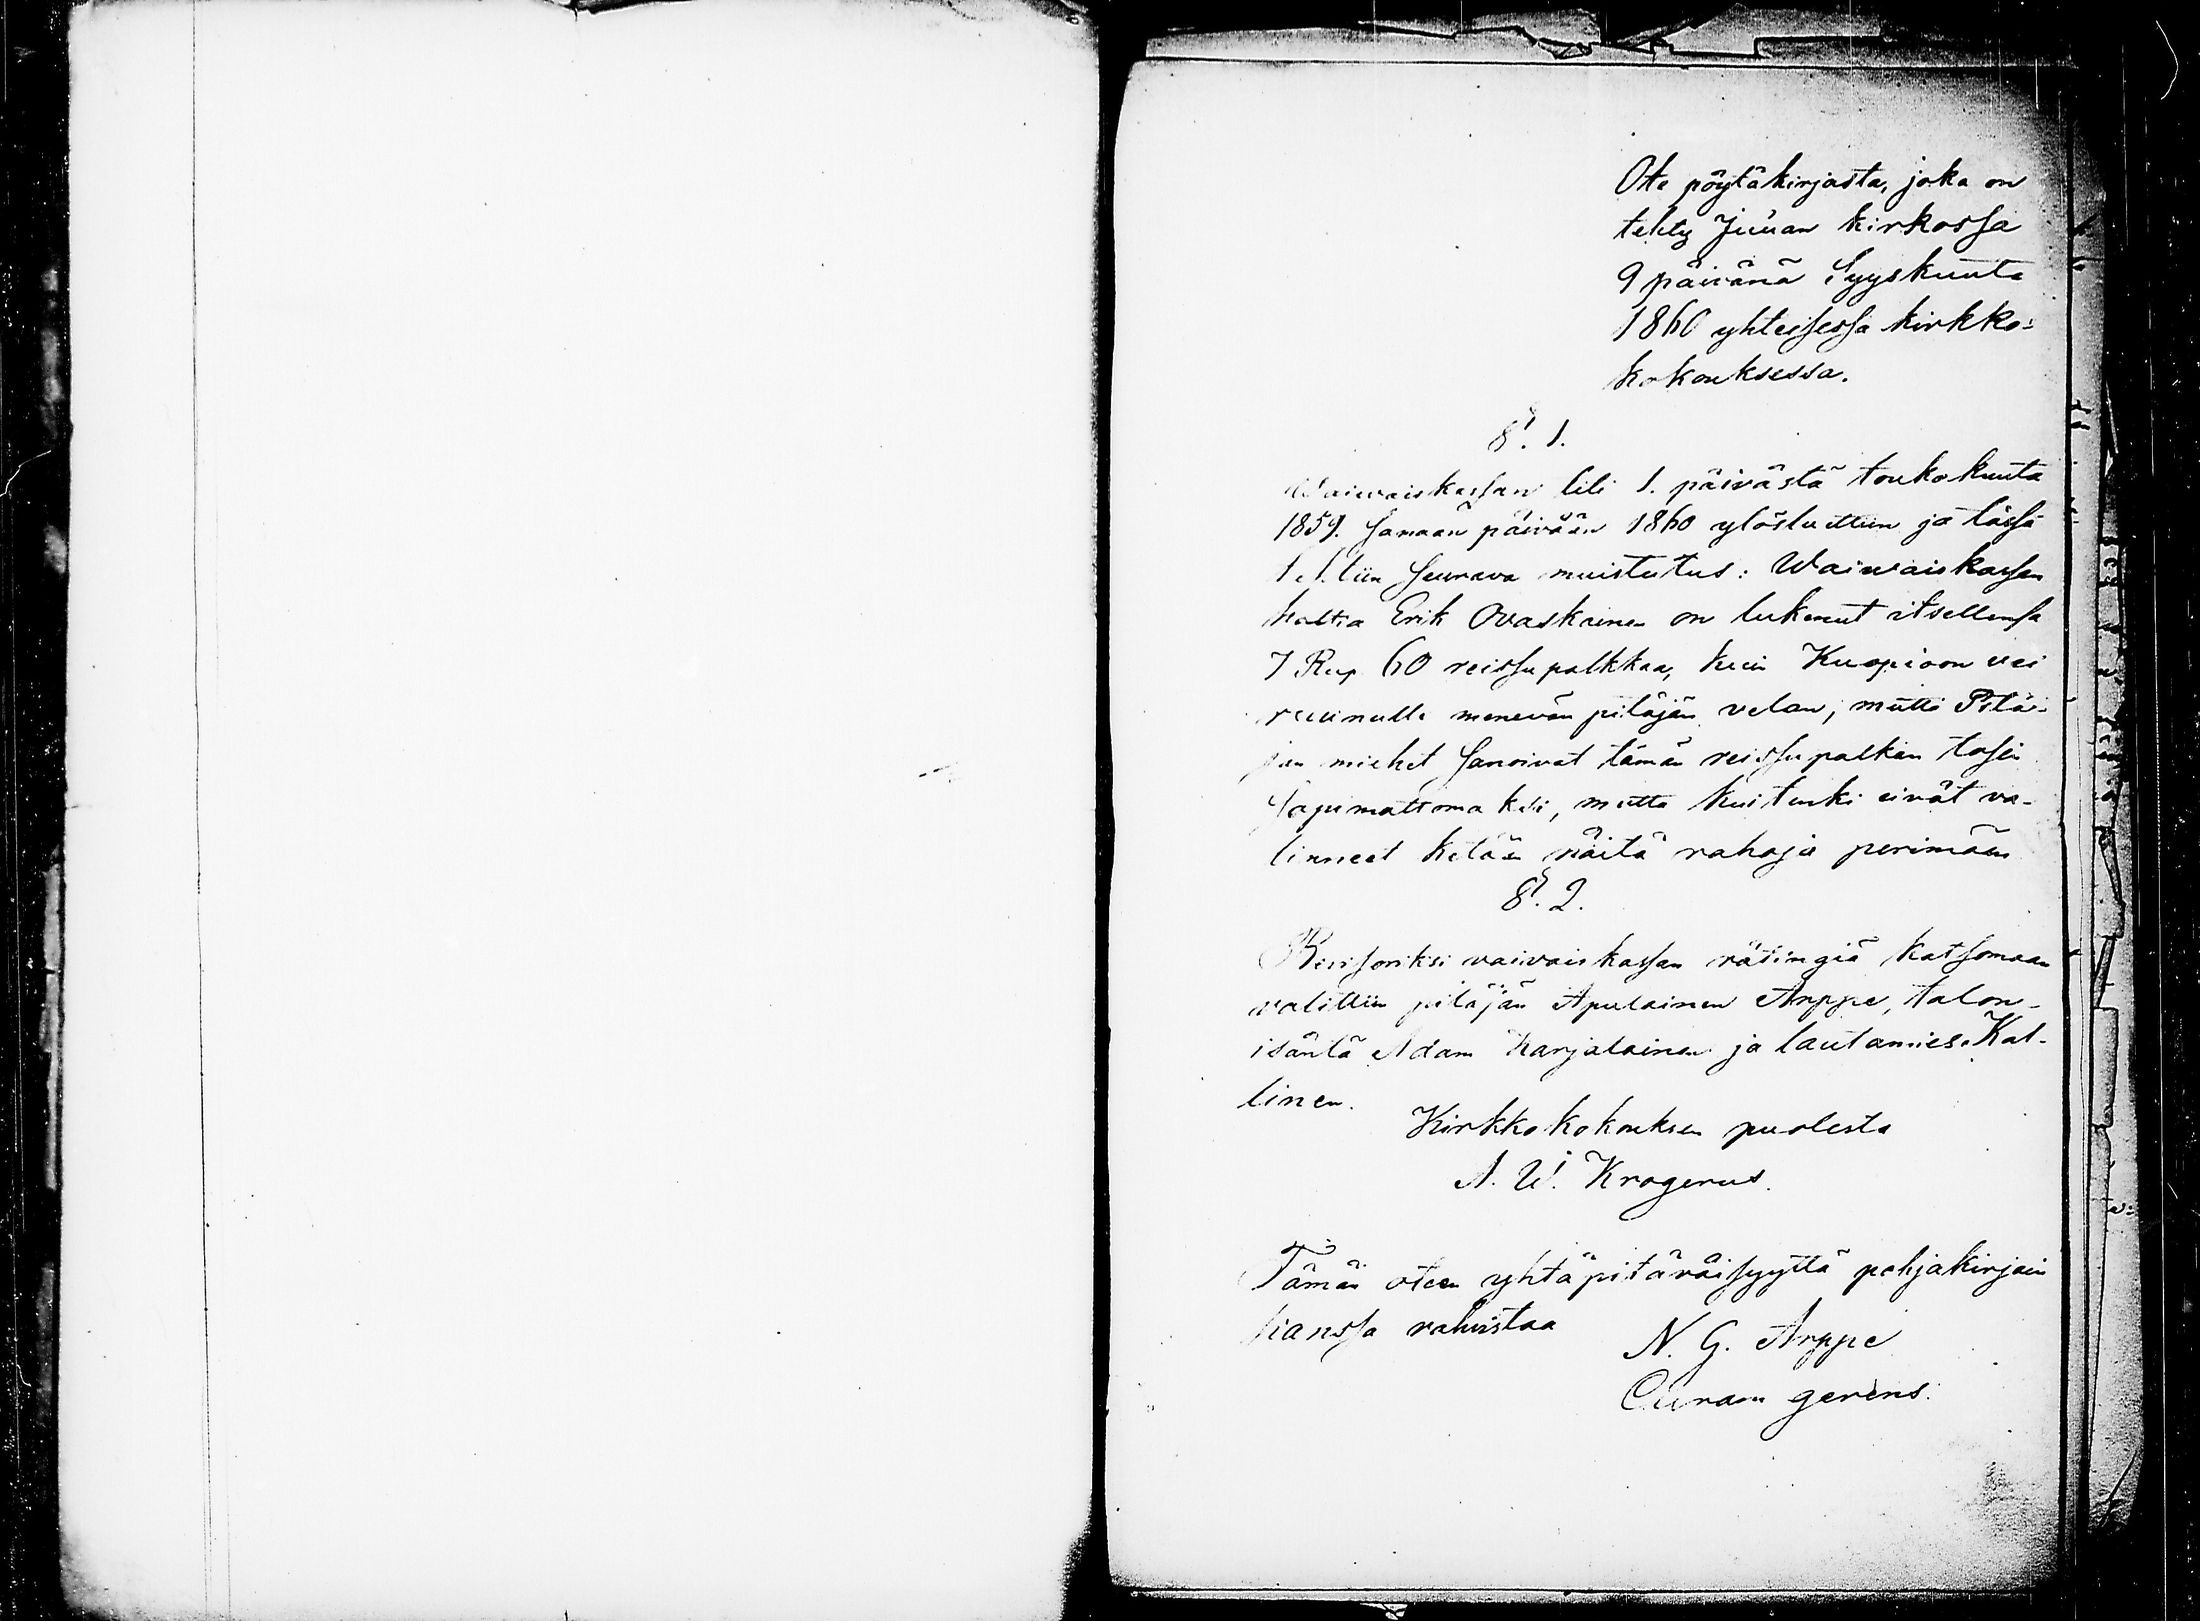 Ote pöytäkirjasta, joka on
tehty Juuan kirkossa
9 päivänä Syyskuuta
1860 yhteisessä kirkko-
kokouksessa.
§. 1.
Waiwaiskassan tili 1. päivästä toukokuuta
1859. samaan päivään 1860 ylösluettiin ja tässä
tehtiin seurava muistutus: Waiwaiskassan
haltia Erik Ovaskainen on lukenut itsellensä
7 Rup 60 reissupalkkaa, kuin Kuopioon vei
ruunulle menevän pitäjän velan; mutta Pitä-
jän miehet sanoivat tämän reissupalkan tosin
sopimattomaksi, mutta kuitenki eivät va-
linneet ketään näitä rahoja perimään
§. 2.
Revisoriksi vaivaiskassan rätingiä katsomaan
valittiin pitäjän Apulainen Arppe, talon-
isäntä Adam Karjalainen ja lautamies Kal-
linen.
Kirkkokokouksen puolesta
A. W. Krogerus.
Tämän oteen yhtäpitäväisyyttä pohjakirjain
kanssa vahvistaa
N. G. Arppe
Curam gerens.